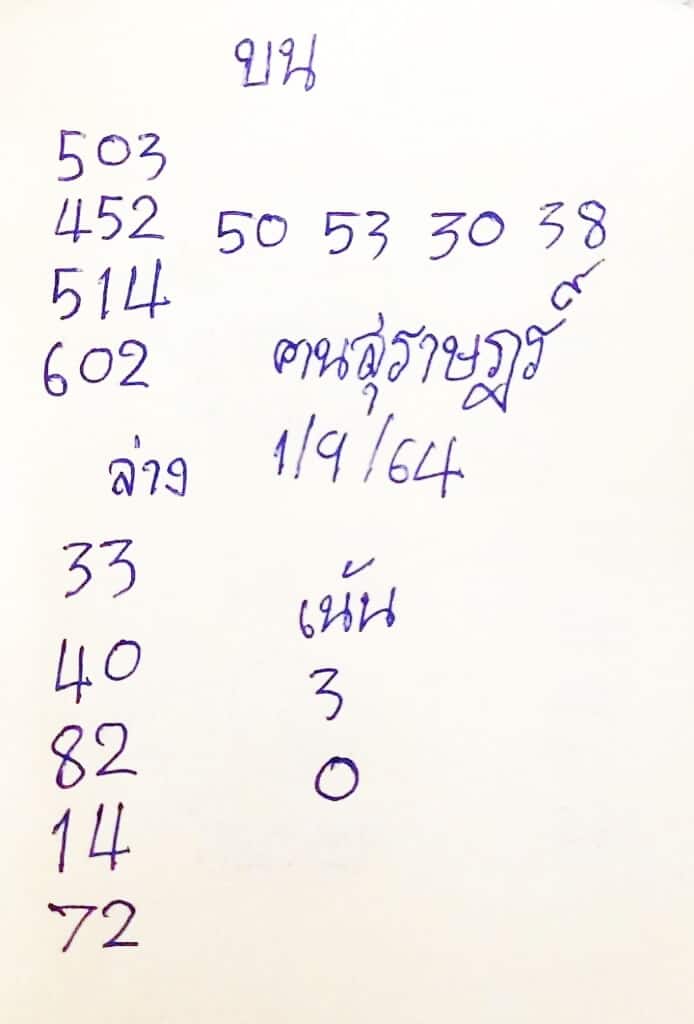 บน
503
452 50 53 30 38
514
602 ฅนสุราษฎร์
ล่าง 1/9/64
33
เน้น
40 3
82 0
14
72